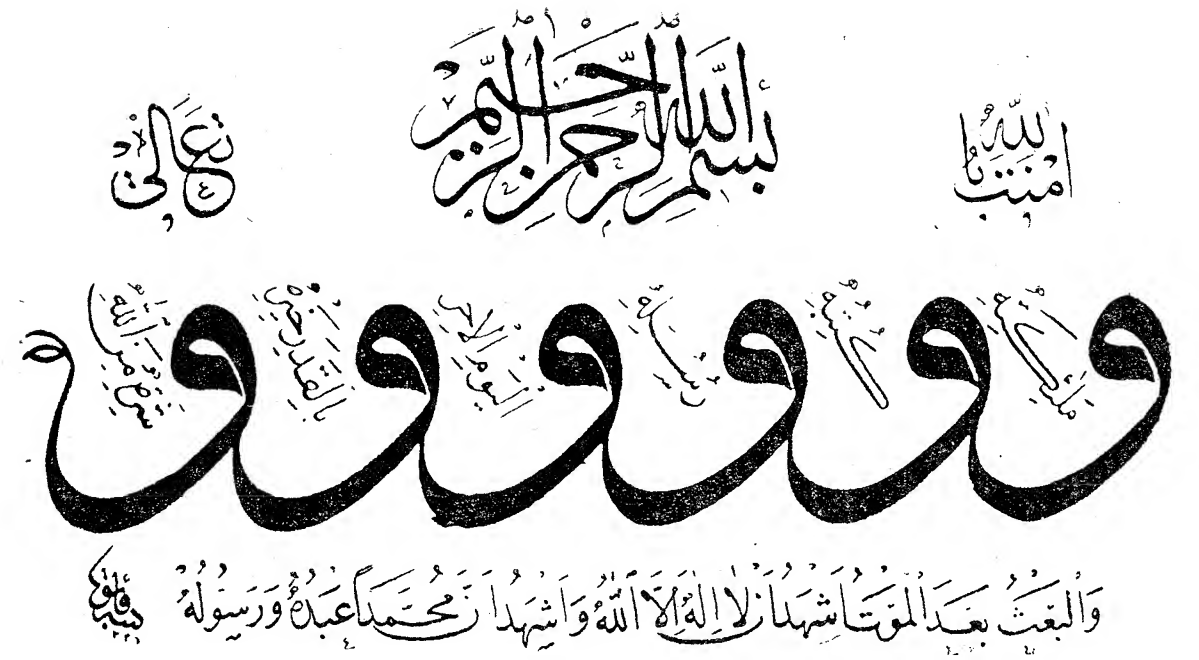 امنت بالله بسم الله الرحمن الرحيم تعالى
و ملئكته و كتبه و رسله و اليوم الاخر و بالقدر خيره و شره من الله
وَالْبَعْثُ بَعْدَ الْمَوْتِ اَشْهَدُ اَنْ لَا اِلٰهَ اِلَّا اللّٰهُ وَاَشْهَدُ اَنَّ مُحَمَّدًا عَبْدُهُ وَرَسُولُهُ